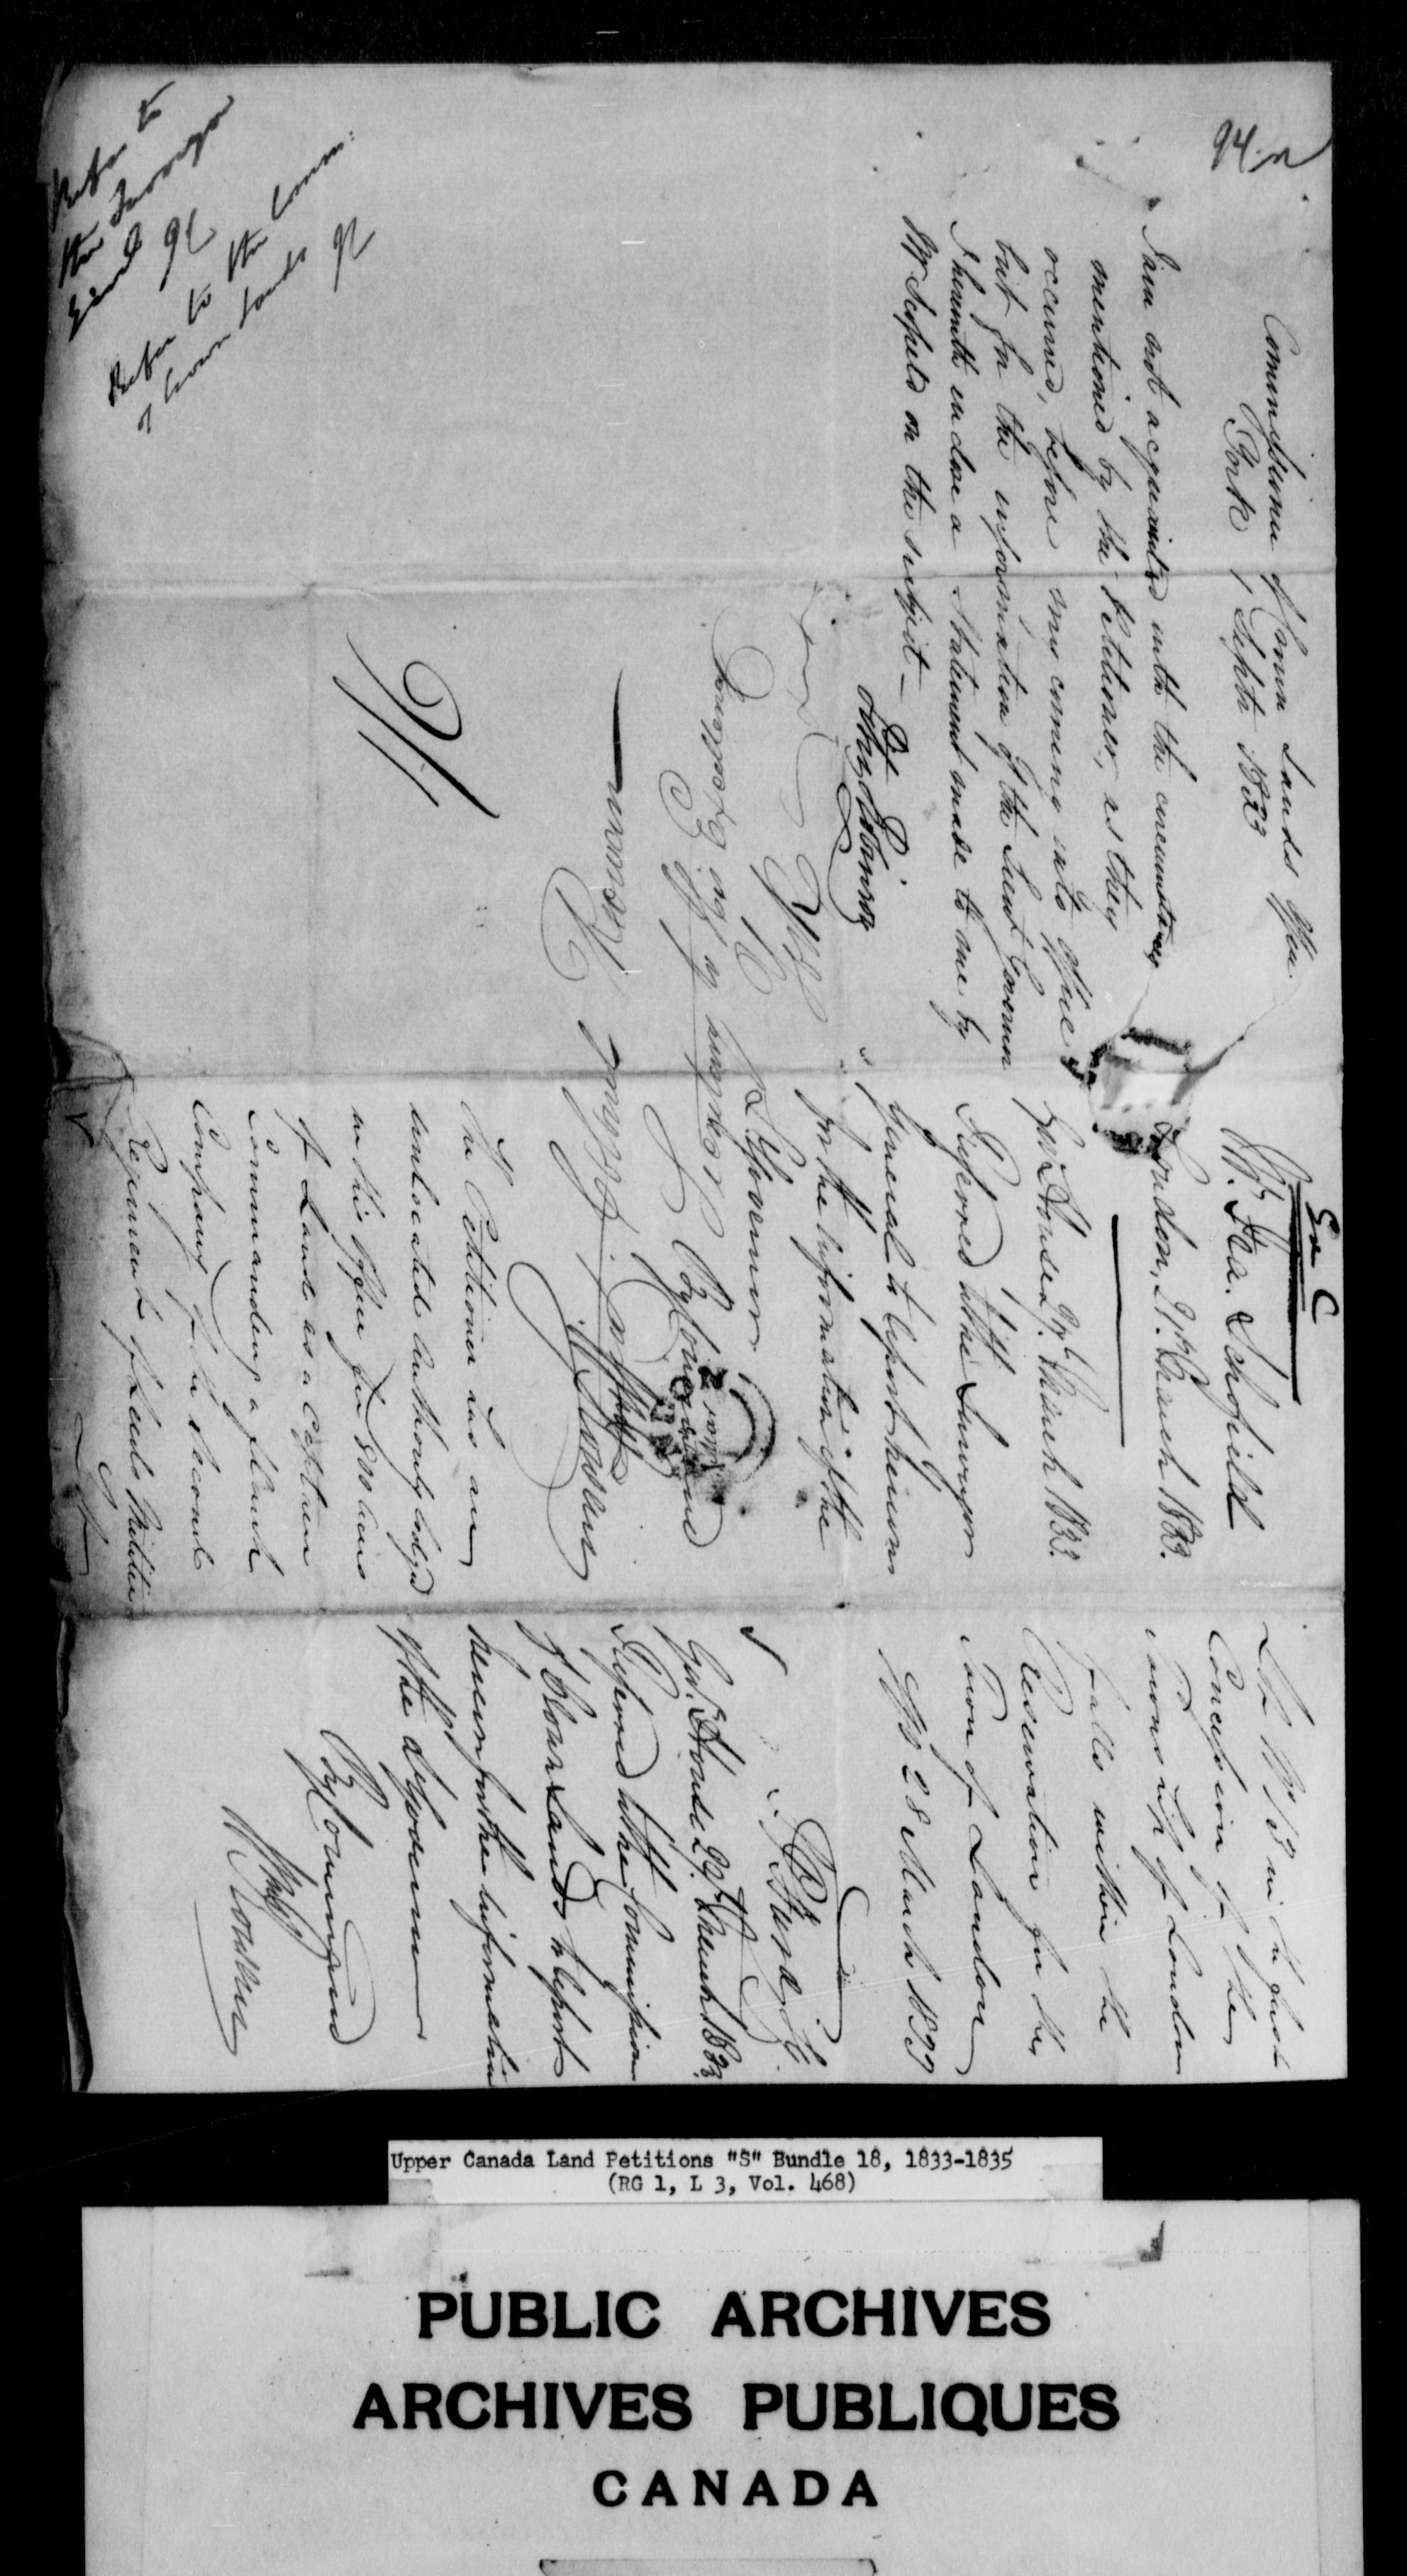 94 n
Commissioner of Crown Lands Office
York 1 Septr 1833
I am not acquainted with the circumstances
mentioned by the Petitioner, as they
occurred, before my coming into office
but for the information of the Lieut Governor
I herewith enclose a Statement made to me by
Mr Schofield on the subject —
Refer to
the Surveyor
General
Refer to the Comm:
of Crown Lands
Ex C
Ira Schofield
London, 21st March 1833.
Govt House 27t March 1833.
Referred to the Surveyor
General to Report hereon
for the information of the
Lt Governor
By Command
Wm Rowan
The Petitioner has an
unlocated authority lodged
in this office for 800 acres
of Land as a Captain
Commanding a flank
Company of the second
Regiment of Leeds Militia
Lot No 13 in the first
Concession of the
Township of London
falls within the
Reservation for the
Town of London
28 March 1833
Govt House 29t March 1833
Referred to the Commissioner
of Crown Lands to Report
hereon for the information
of the Lt Governor
By Command
Wm Rowan
Upper Canada Land Petitions "S" Bundle 18, 1833-1835
(RG 1, L 3, Vol. 468)
PUBLIC ARCHIVES
ARCHIVES PUBLIQUES
CANADA